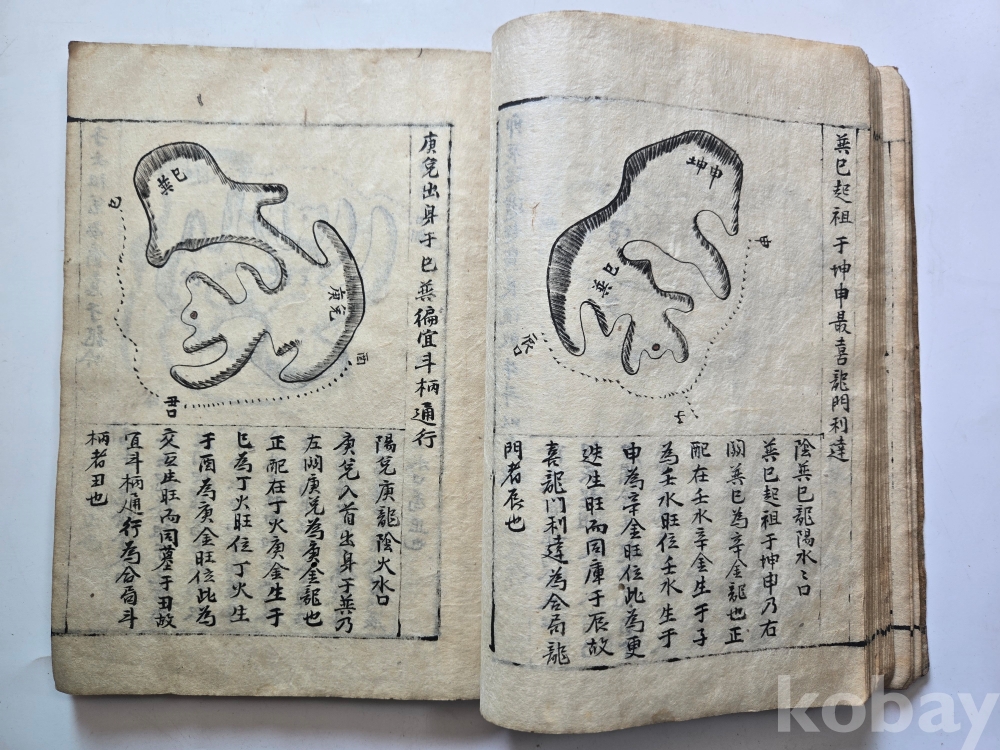 巽巳起祖于坤申最喜龍門利達
坤申
巽巳
申
辰口
子
陰巽巳龍陽水〻口
巽巳起祖于坤申乃右
関巽巳為辛金龍也正
配在壬水辛金生于子
為壬水旺位壬水生于
申為辛金旺位此為更
迭生旺而同庫于辰故
喜龍門利達為合局龍
門者辰也
庚兌出身于巳巽徧宜斗柄通行
巽巳
巳
庚兌
酉
丑口
陽兌庚龍陰火水口
庚兌入首出身于巽乃
左関庚兌為庚金龍也
正配在丁火庚金生于
巳為丁火旺位丁火生
于酉為庚金旺位此為
交互生旺而同墓于丑故
宜斗柄通行為合局斗
柄者丑也
kobay